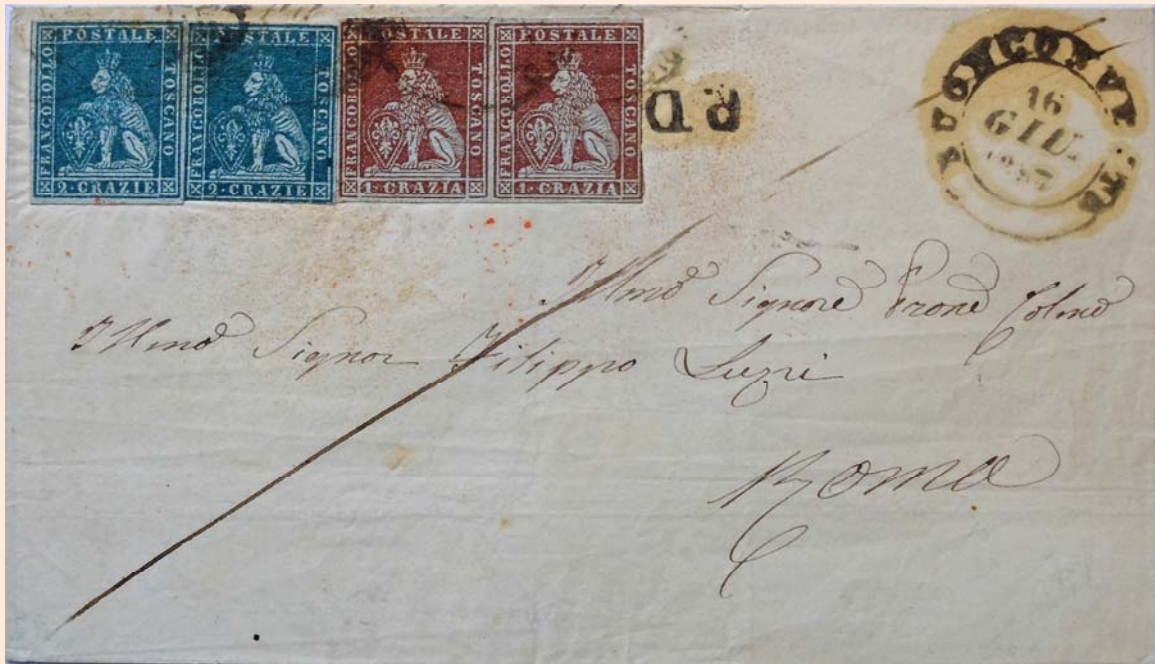 FRANCOBOLLO POSTALE TOSCANO
2·CRAZIE
FRANCOBOLLO POSTALE TOSCANO
2·CRAZIE
FRANCOBOLLO POSTALE TOSCANO
1·CRAZIA
FRANCOBOLLO POSTALE TOSCANO
1·CRAZIA
P.D.
BUONCONVENTO
16
GIU.
Signore
Signor Filippo
Roma